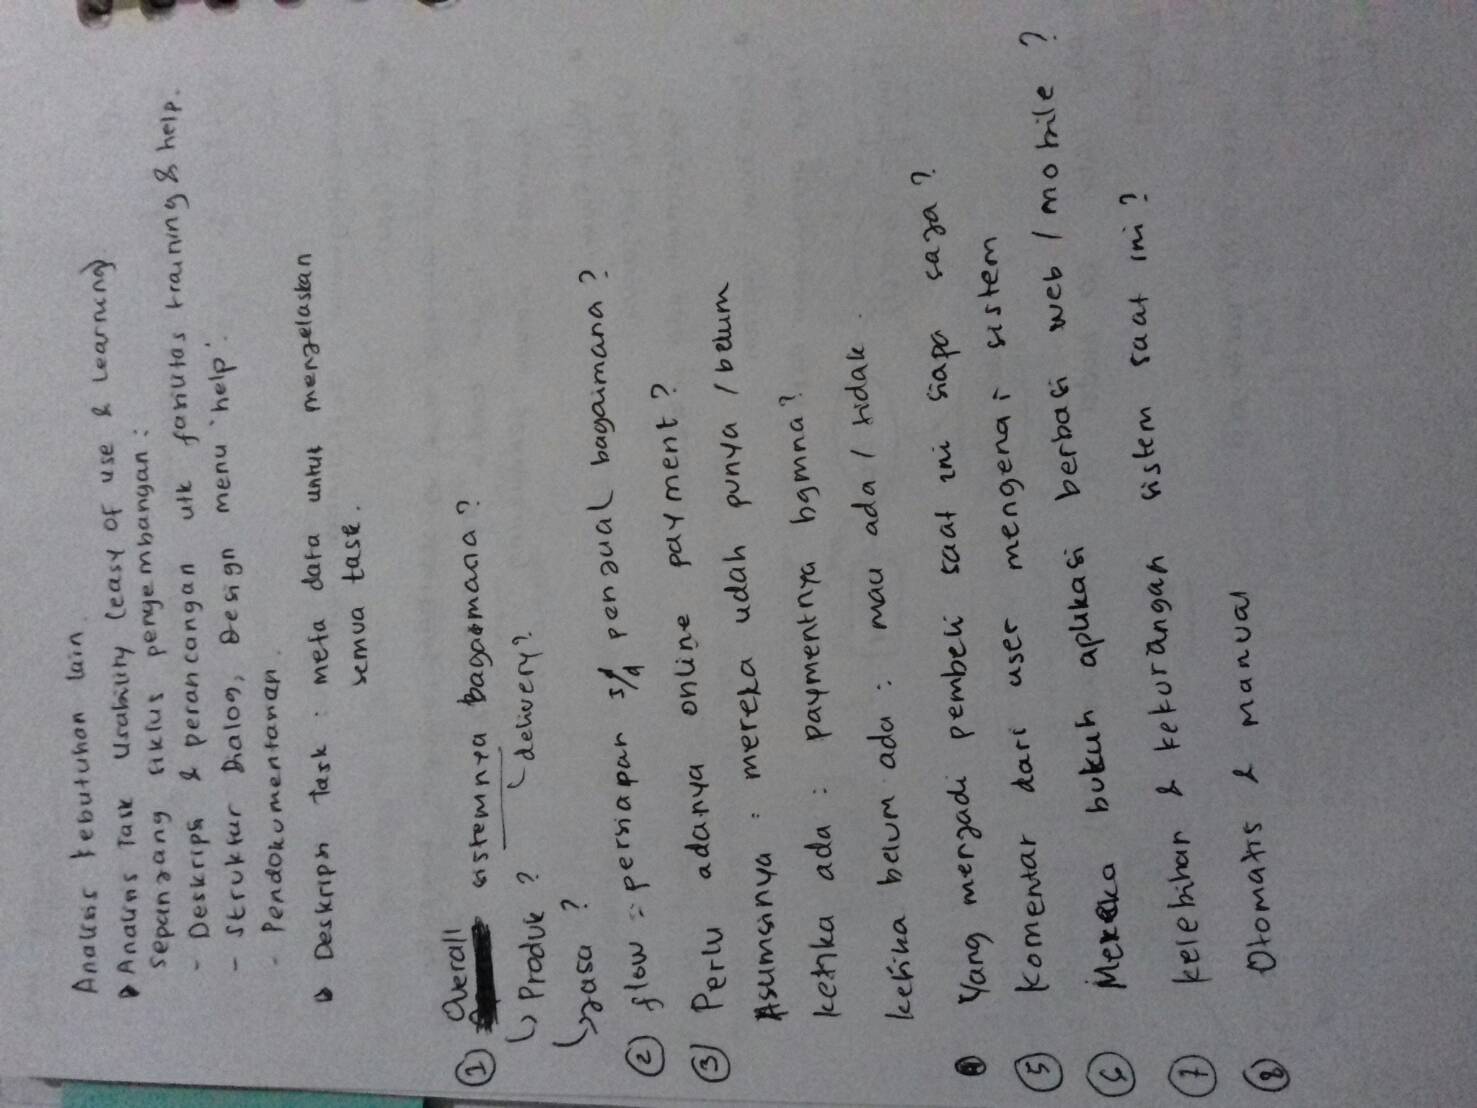 Analisis kebutuhan lain.
Analisis Task Usability (easy of use & Learning)
sepanjang siklus pengembangan :
- Deskripsi & perancangan utk fasilitas training & help.
- Struktur Dialog, Design menu 'help'.
- Pendokumentasian.
Deskripsi Task : meta data untuk menjelaskan
semua task.
① Overall sistemnya bagaimana ?
↳ Produk ? delivery?
↳ Jasa ?
② flow : persiapan s/d penjual bagaimana ?
③ Perlu adanya online payment ?
Asumsinya : mereka udah punya / belum
ketika ada : paymentnya bgmna ?
ketika belum ada : mau ada / tidak.
④ Yang menjadi pembeli saat ini siapa saja ?
⑤ Komentar dari user mengenai sistem
⑥ Mereka butuh aplikasi berbasi web / mobile ?
⑦ kelebihan & kekurangan sistem saat ini ?
⑧ Otomatis & manual